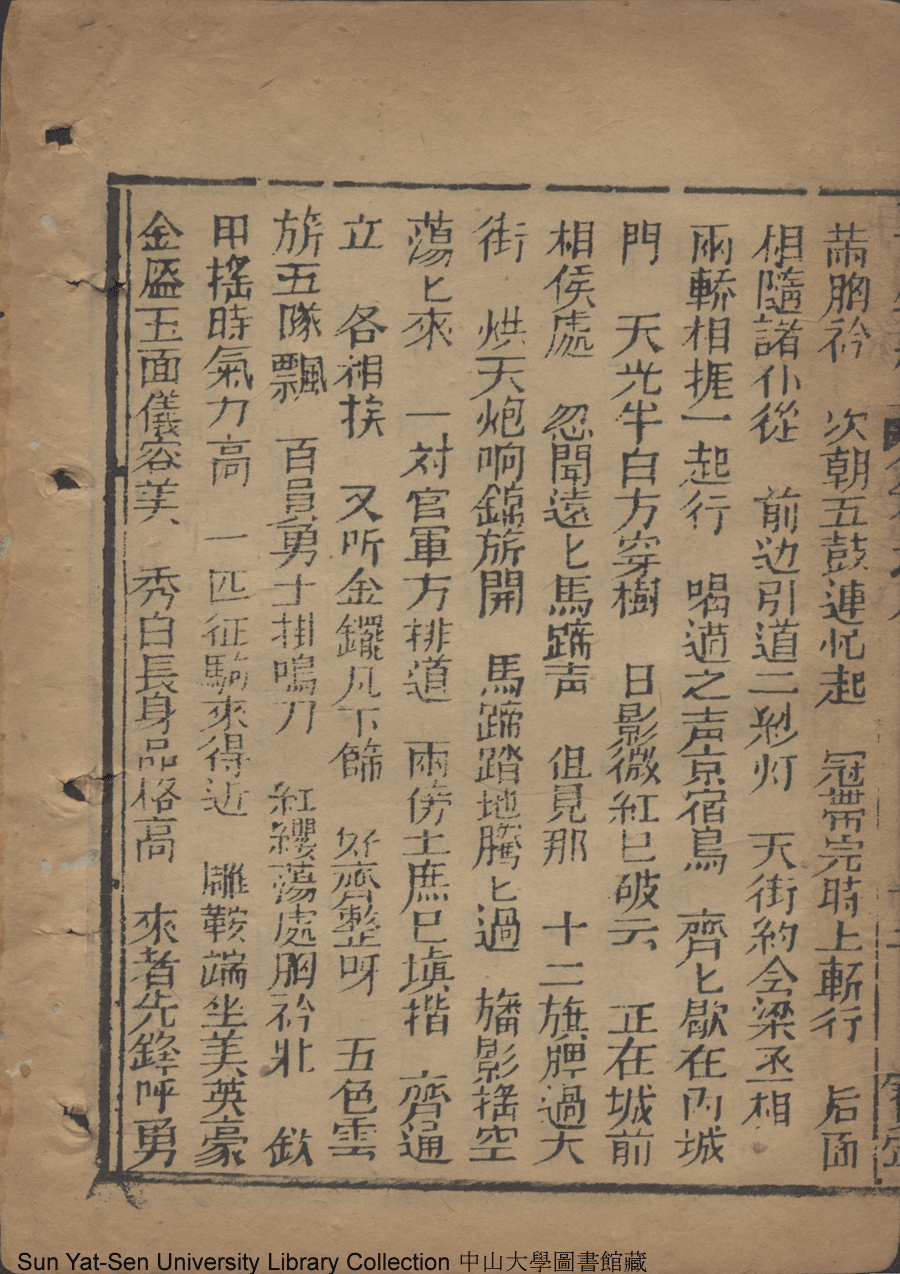 胸衿 次朝五鼓連忙起 冠帶完時上轎行 后面
相隨諸仆從 前边引道二判灯 天街約仝梁丞相
兩轎相挨一起行 喝道之声京宿鳥 齊匕歇在內城
門 天光半白方穿樹 日影微紅已破云 正在城前
相侯處 忽聞遠匕馬蹄声 但見那 十二旗牌過天
街 烘天炮响錦旂開 馬蹄踏地騰匕過 旛影搖空
蕩匕來 一对官軍方排道 兩傍士庶已塡揩 齊通
立 各相挨 又听金鑼凡下篩 好齊整呀 五色雲
旂五隊飄 百員勇士掛鳴刀 紅纓蕩處胸衿壯 欽
甲搖時氣力高 一匹征駒來得近 雕鞍端坐美英豪
金盔玉面儀容美 秀白長身品格高 來者先鋒呼勇
Sun Yat-Sen University Library Collection 中山大學圖書館藏